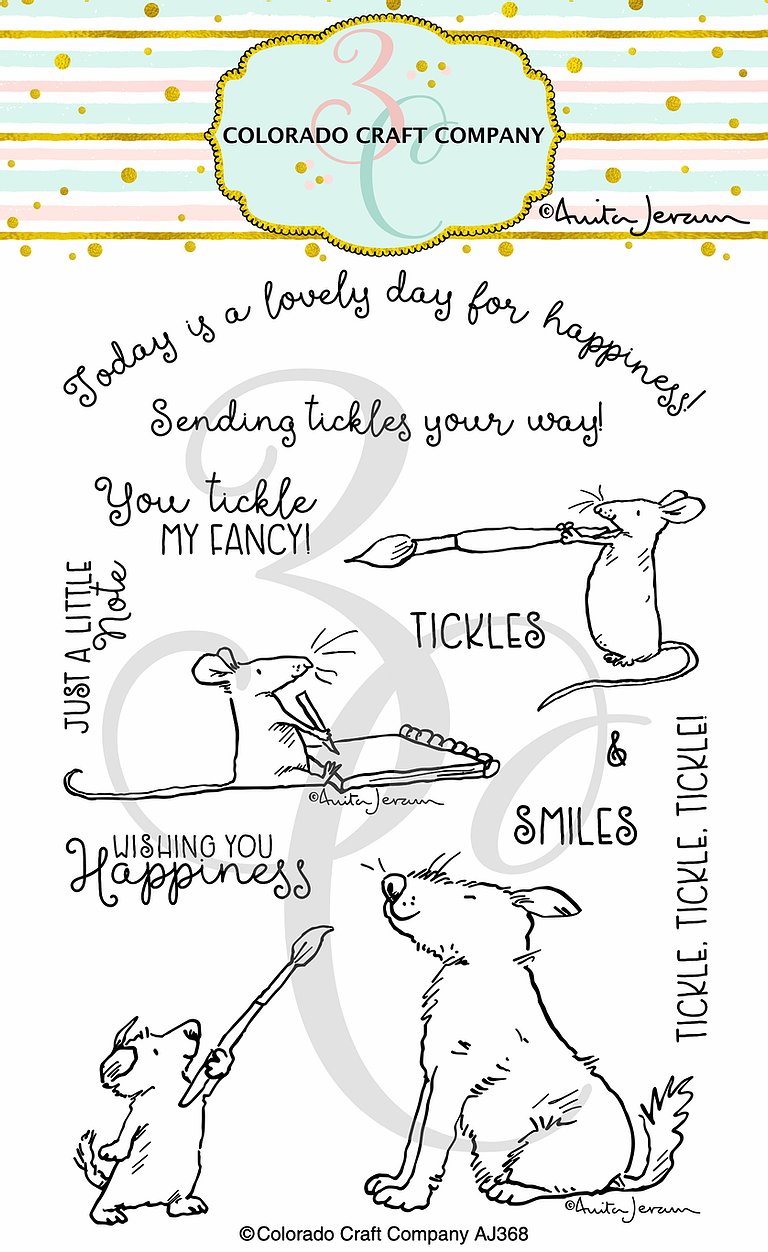 3C
COLORADO CRAFT COMPANY
©Anita Jeram
Today is a lovely day for happiness!
Sending tickles your way!
You tickle
MY FANCY!
JUST A LITTLE
Note
TICKLES
&
SMILES
©Anita Jeram
WISHING YOU
Happiness
TICKLE, TICKLE, TICKLE!
©Anita Jeram
©Colorado Craft Company AJ368
3C